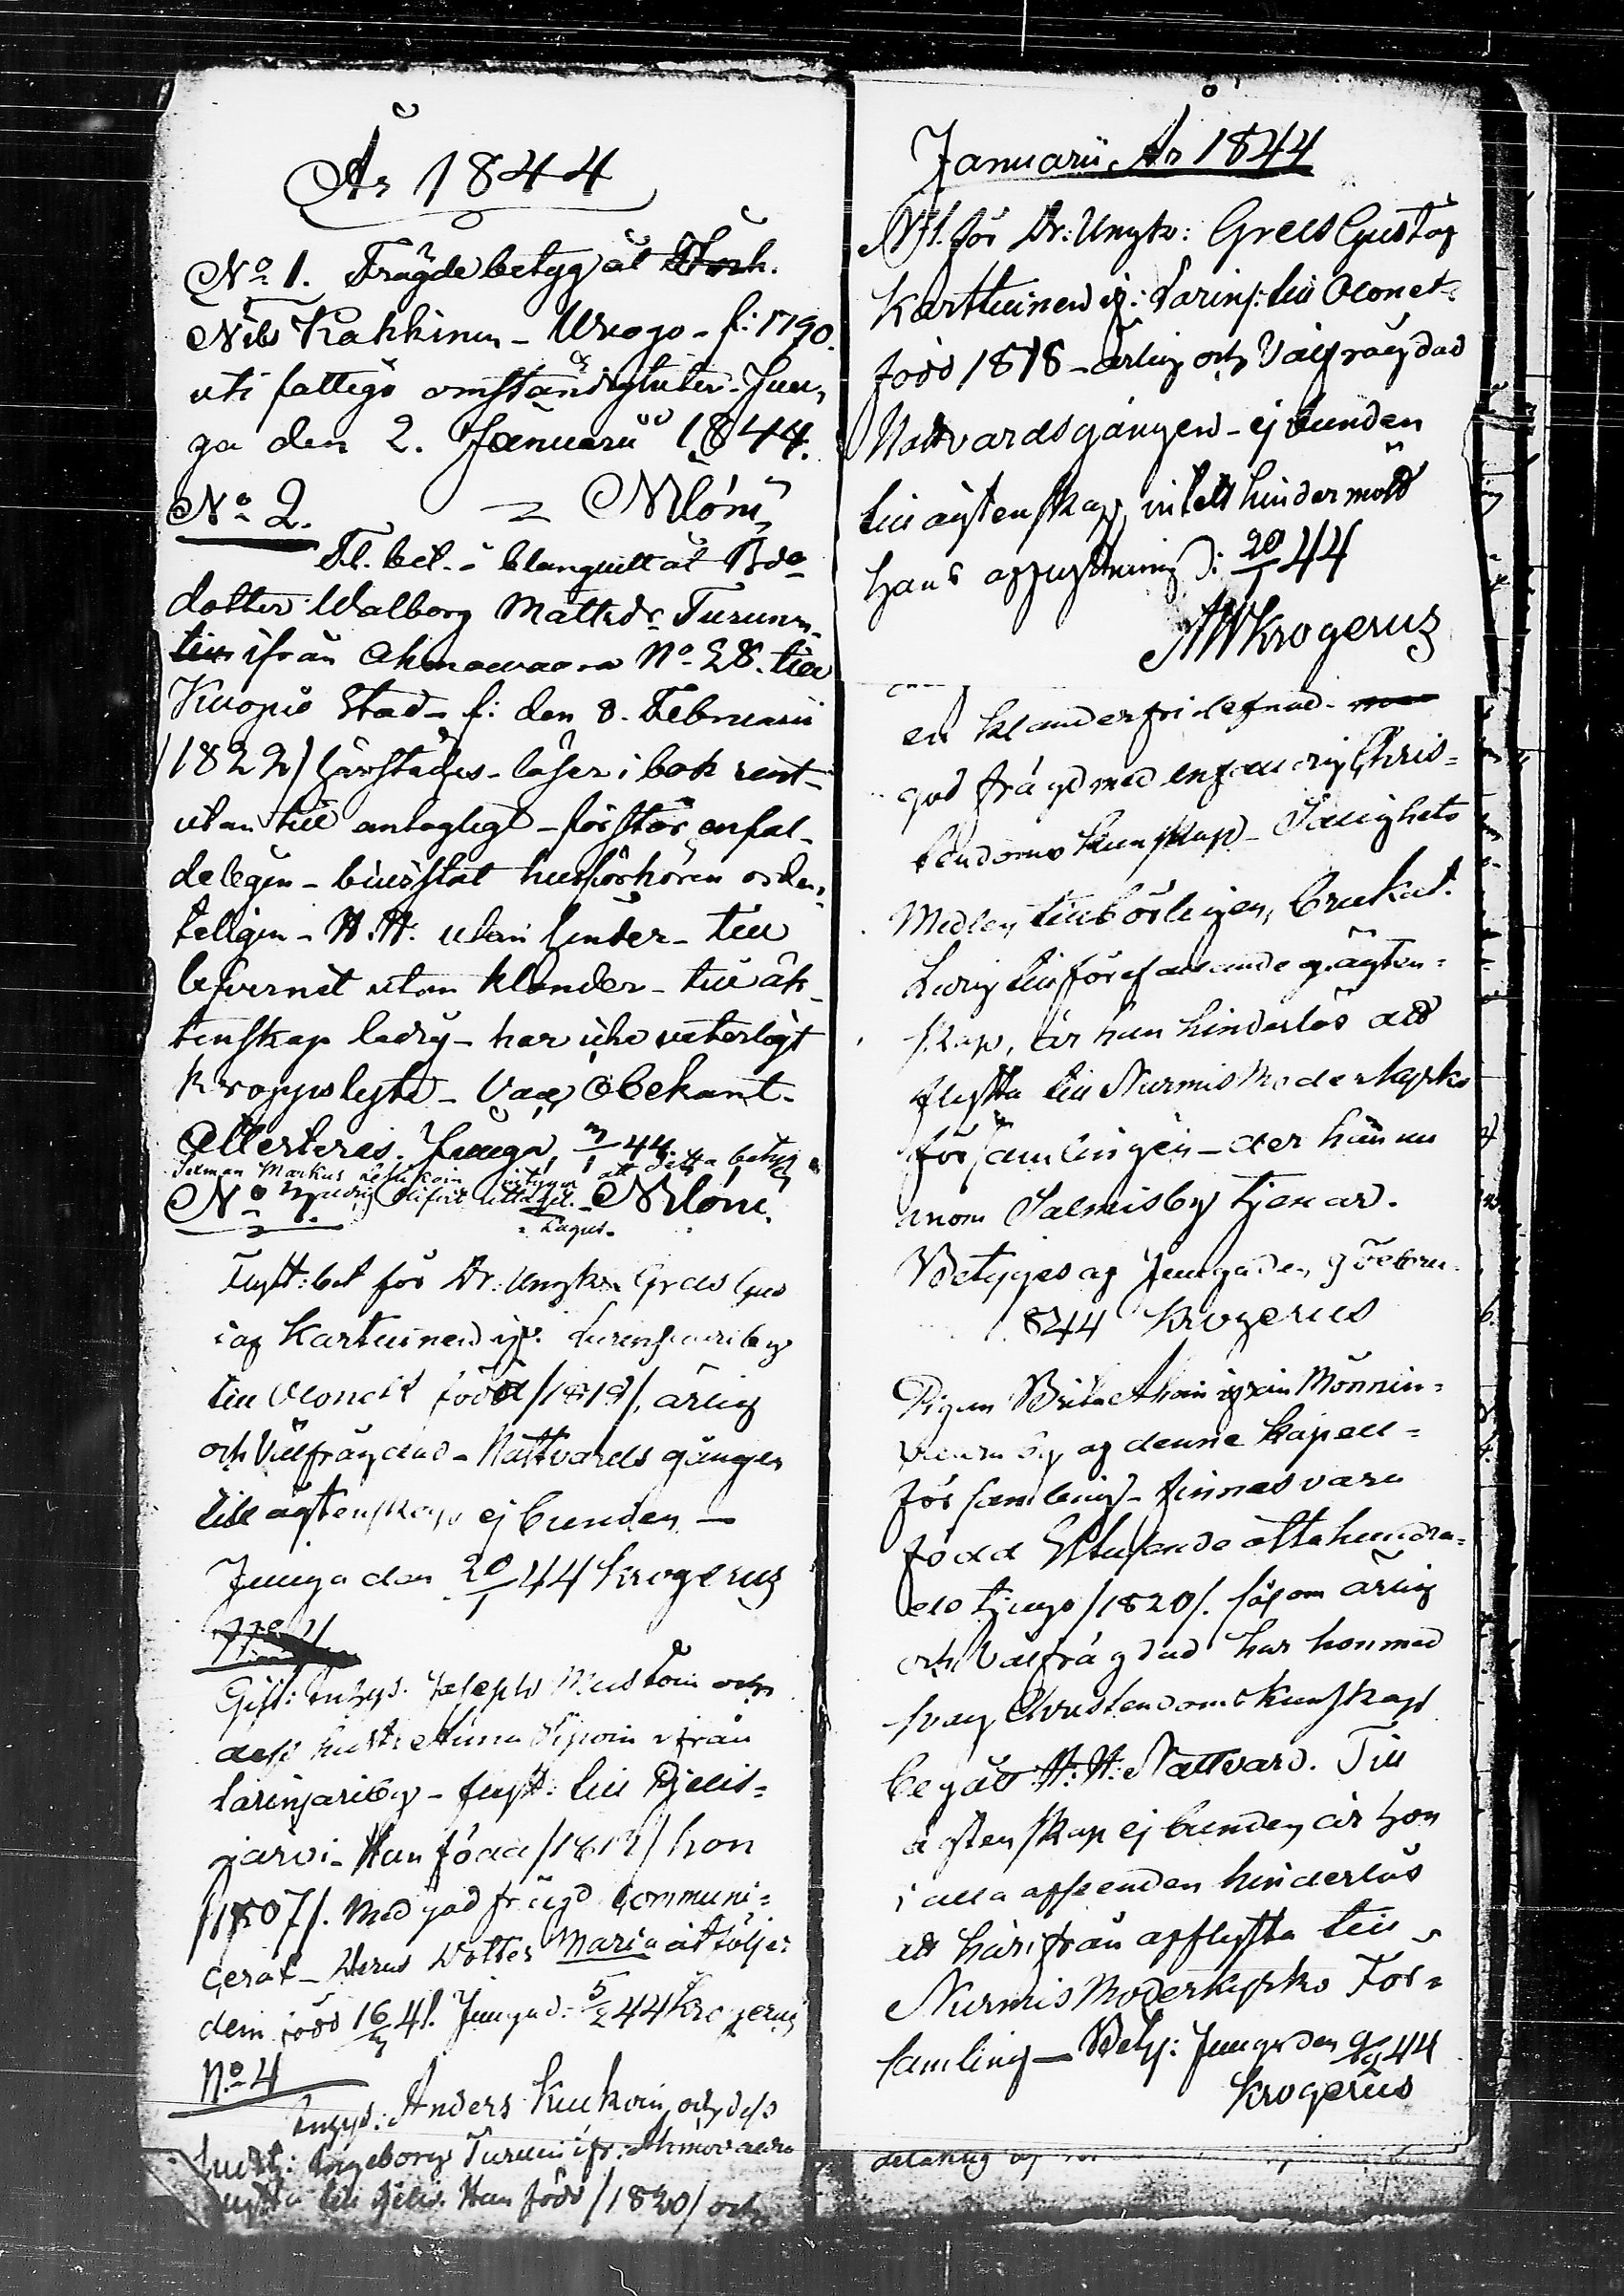 År 1844
No 1. Frägdebetyg åt Torh.
Nils Kakkinen - Ukogo - f: 1790.
uti fattige omständigheter. Juu,
ga den 2. Januarii 1844.
No 2.
Fl. bet. - blanquett åt Bde
dotter Walborg Mattsdr Turunen
ifrån Ahmowaara No 28. till
Kuopio Stad - f: den 8. Februarii
/1822/ härstädes - läser i bok rent -
utan till antagligt - förstår enfal-
deligen - biwistat husförhören orden,
teligen - H.H. utan hinder - till
lefvernet utan klander - till äk-
tenskap ledig - har icke veterligt
kroppslyte - Vacc Obekant.
Attesteras. Juuga, 3/1 44.
Markus intygar att detta betyg
No 3.
Flytt: bet för Dr: Ungk: Grels Gus
taf Karttuinen ifr: Larinsaari by
till Olonetz född /1818/, ärlig
och Välfrägdad - Nattvards gången
till ägtenskap ej bunden -
Juuga den 20/1 44 Krogerus
Gift: Inhys. Joseph Mustoin och
dess hustr: Anna ifrån
Larinsari by - flytt: till Pjelis=
järvi - Han född /1812/ hon
/1807/. Med god frägd communi=
cerat - Deras dotter Maria åtföljer
dem född 16/ 41. Juuga d: 5/2 44 Krogerus
No 4
Inhys: Anders Kukkoin och dess
hustr: Ingeborg Turuin ifr: Ahmovaara
flytta till Pjelis. Han född /1820/ och
Januarii År 1844
No 1. för Dr: Ungk: Grels Gustaf
Karttuinen if: Larins: till Olonetz
född 1818 - ärlig och Välfrägdad
Nattvardsgången - ej bunden
till ägtenskap, intett hinder möter
hans afflyttning d: 20/1 44
Krogerus
en klanderfri lefnad -
god frägd med enfaldrig Chris=
tendoms kunskap - Salighets
Medlen tillbörligen, brukat.
Ledig till föresående ägten=
skap, är hun hinderlös att
flytta till Nurmis Moderkyrko
församlingen - der hun nu
inom Salmis by tjenar.
Betyges af Juuga den 9 Febru.
1844 Krogerus
Pigan Brita ifrån Mönnin=
vaara by af denne Kapell=
församling - finnes vara
född Ettusende åttahundra=
de tjugo /1820/. såsom ärlig
och Välfrägdad har hon med
svag Christendoms kunskap
begått H: H: Nattvard. Till
ägtenskap ej bunden är hon
i alla afseenden hinderlös
att härifrån afflytta till
Nurmis Moderkyrko För=
samling - Bety: Juuga den 9/2 44
Krogerus